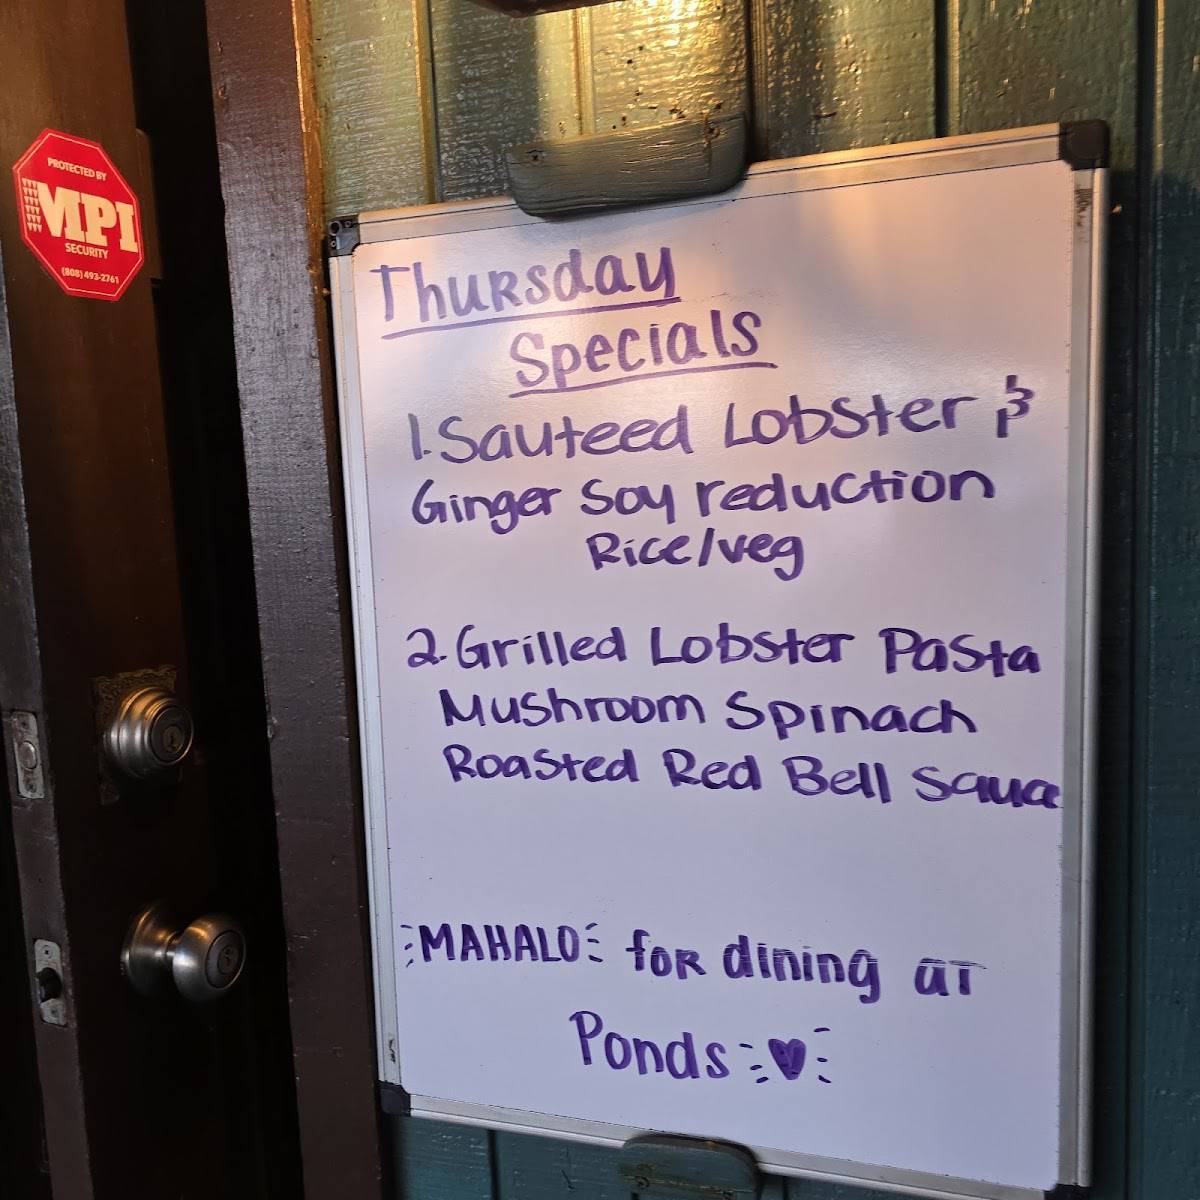 PROTECTED BY
MPI
SECURITY
(808) 493-2761
Thursday
Specials
1. Sauteed Lobster &
Ginger Soy reduction
Rice/veg
2. Grilled Lobster Pasta
Mushroom Spinach
Roasted Red Bell Sauce
MAHALO for dining at
Ponds ♥